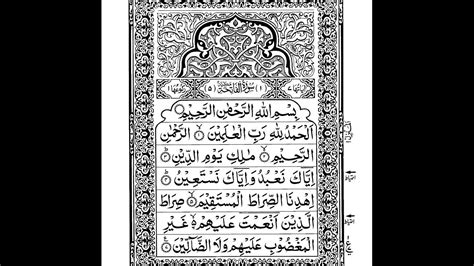 سُوْرَةُ الْفَاتِحَةِ
بِسْمِ اللّٰهِ الرَّحْمٰنِ الرَّحِيْمِ
اَلْحَمْدُ لِلّٰهِ رَبِّ الْعٰلَمِيْنَ ۙ﴿۱﴾ الرَّحْمٰنِ
الرَّحِيْمِ ۙ﴿۲﴾ مٰلِكِ يَوْمِ الدِّيْنِ ؕ﴿۳﴾
اِيَّاكَ نَعْبُدُ وَاِيَّاكَ نَسْتَعِيْنُ ؕ﴿۴﴾
اِهْدِنَا الصِّرَاطَ الْمُسْتَقِيْمَ ۙ﴿۵﴾ صِرَاطَ
الَّذِيْنَ اَنْعَمْتَ عَلَيْهِمْ ۙ۬﴿۶﴾ غَيْرِ
الْمَغْضُوْبِ عَلَيْهِمْ وَلَا الضَّآلِّيْنَ ﴿۷﴾